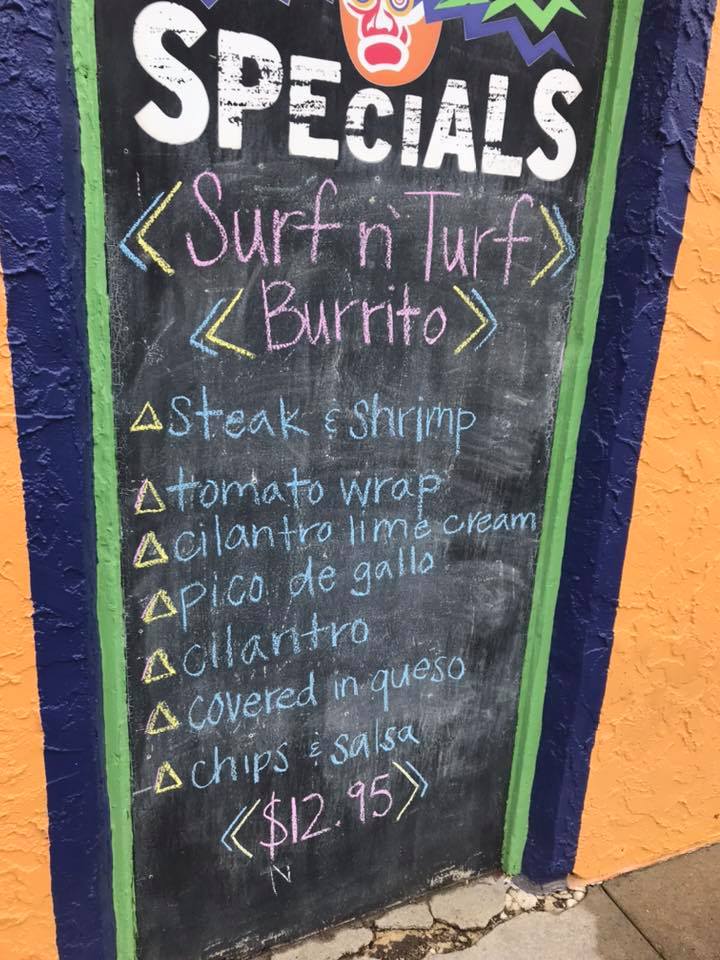 SPECIALS
Surf n' Turf
Burrito
steak & shrimp
tomato wrap
cilantro lime cream
pico de gallo
cilantro
covered in queso
chips & salsa
$12.95
N